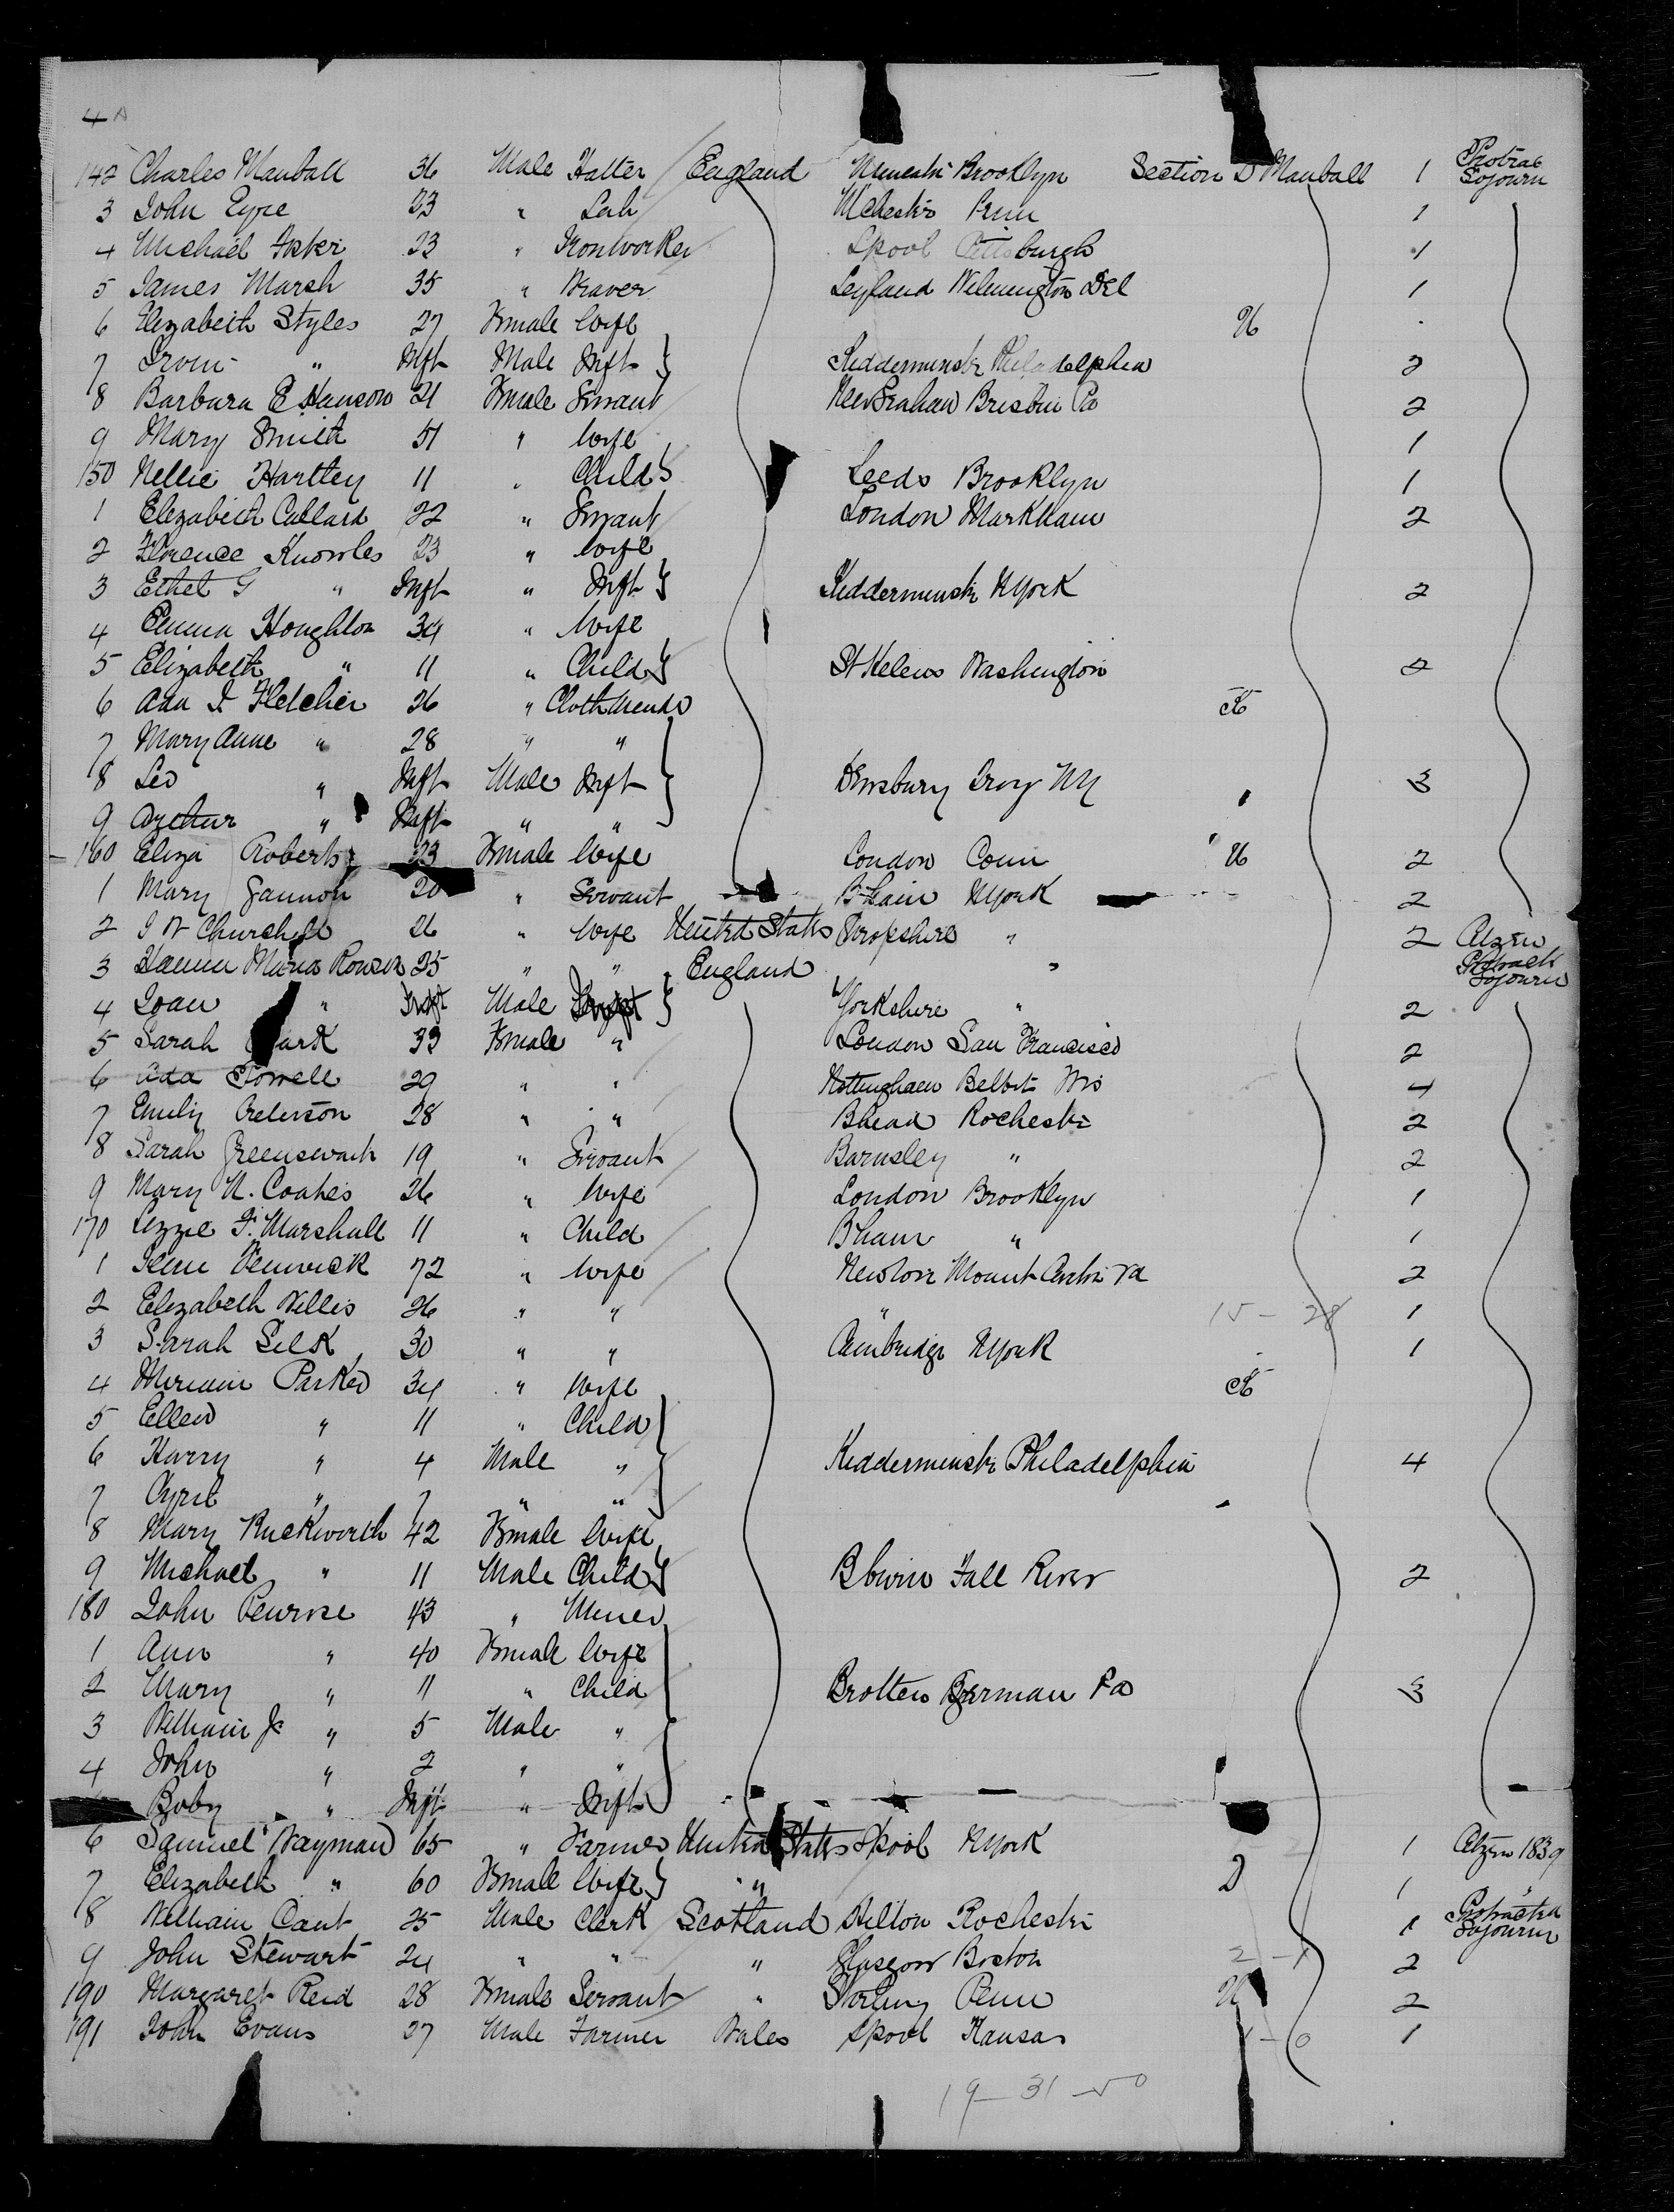 4 A
142 Charles Manball 36 Male Hatter England Brooklyn Section D Manball 1 Protrac Sojourn
3 John Eyre 23 " Lab Mchestr Penn 1
4 Michael 23 " Ironworker Lpool Pittsburgh 1
5 James Marsh 35 " Weaver Leyland Wilmington Del 1
6 Elizabeth Styles 27 Female Wife U
7 " Inft Male Inft Kidderminstr Philadelphia 2
8 Barbara E Hanson 21 Female Servant Brisbin Pa 2
9 Mary Smith 51 " Wife 1
150 Nellie Hartley 11 " Child Leeds Brooklyn 1
1 Elizabeth Callard 22 " Servant London Markham 2
2 Florence Knowles 23 " Wife
3 Ethel G " Inft " Inft Kidderminstr NYork 2
4 Emma Houghton 34 " Wife
5 Elizabeth " 11 " Child St Helens Washington 2
6 Ada I. Fletcher 26 " Cloth Mender
7 Mary Anne " 28 " "
8 Leo " Inft Male Inft Dewsbury Troy NY 3
9 Arthur " Inft " "
160 Eliza Roberts 23 Female Wife London Conn U 2
1 Mary Gannon 20 " Servant NYork 2
2 J W Churchill 26 " Wife United States Shropshire " 2 Ctzen
3 Maria 25 " " England " Protract Sojourn
4 " Inft Male Yorkshire " 2
5 Sarah Clark 33 Female " London San Francisco 2
6 Ada 29 " " Nottingham Beloit Wis 4
7 Emily Peterson 28 " " Bhead Rochestr 2
8 Sarah 19 " Servant Barnsley " 2
9 Mary N. Coates 26 " Wife London Brooklyn 1
170 Lizzie F. Marshall 11 " Child Bham " 1
1 Fenwick 72 " Wife Newton Mount 2
2 Elizabeth Willis 26 " " " 15 - 28 1
3 Sarah Silk 30 " " Cambridge NYork 1
4 Miriam Parker 34 " Wife
5 Ellen " 11 " Child
6 Harry " 4 Male " Kidderminstr Philadelphia 4
7 Cyril " 7 " "
8 Mary Ruckworth 42 Female Wife
9 Michael " 11 Male Child Fall River 2
180 John Penrose 43 " Miner
1 Ann " 40 Female Wife
2 Mary " 11 " Child Brotten Pa 3
3 William Jr " 5 Male "
4 John " 2 " "
Baby " Inft " Inft
6 Samuel Wayman 65 " Farmer United States Lpool NYork 1 Ctzen 1839
7 Elizabeth " 60 Female Wife " " D 1 "
8 William Cant 25 Male Clerk Scotland Hilton Rochestr 1 Protracted Sojourn
9 John Stewart 24 " " " Glasgow Boston 2 - 1 2
190 Margaret Reid 28 Female Servant " Stirling Penn U 2
191 John Evans 27 Male Farmer Wales Lpool Kansas 1 - 0 1
19 - 31 - 50